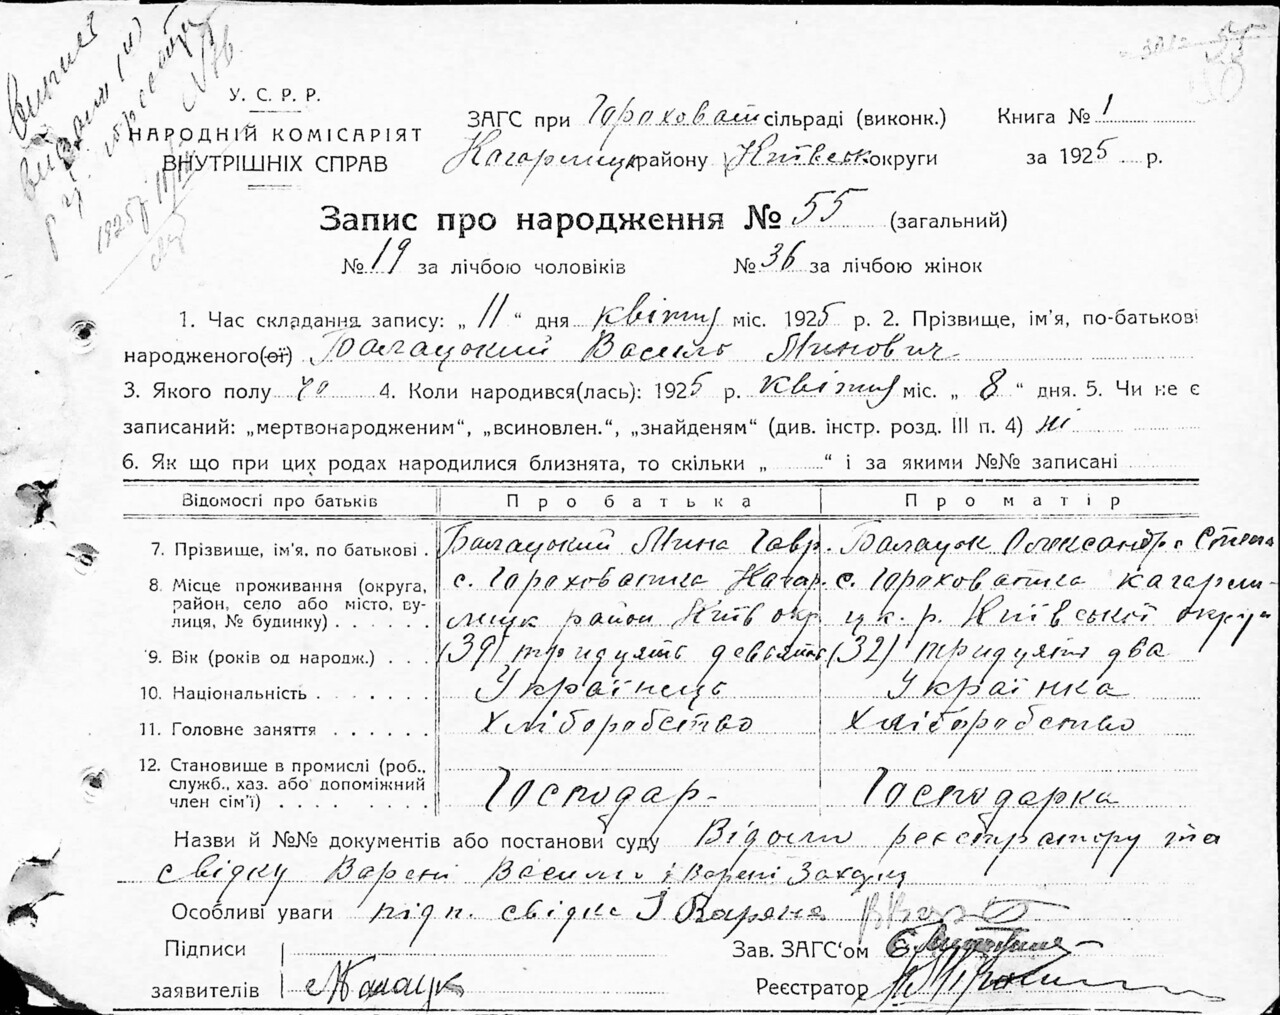 У. С. Р. Р.
НАРОДНІЙ КОМІСАРІЯТ
ВНУТРІШНІХ СПРАВ
ЗАГС при Гороховат сільраді (виконк.) Книга № 1
Кагарлицьк району Київськ округи за 1925 р.
Запис про народження № 55 (загальний)
№ 19 за лічбою чоловіків № 36 за лічбою жінок
1. Час складання запису: „ 11 “ дня квітня міс. 1925 р. 2. Прізвище, ім'я, по-батькові
народженого(ої) Балацький Василь Минович
3. Якого полу чо 4. Коли народився(лась): 1925 р. квітня міс. „ 8 “ дня. 5. Чи не є
записаний: „мертвонародженим“, „всиновлен.“, „знайденям“ (див. інстр. розд. III п. 4) ні
6. Як що при цих родах народилися близнята, то скільки „ “ і за якими №№ записані
Відомості про батьків Про батька Про матір
7. Прізвище, ім'я, по батькові . Балацький Мина Гавр. Балацьк Олександра Степа
8. Місце проживання (округа, с. Гороховатка Кагар. с. Гороховатка Кагарли-
район, село або місто, ву-
лиця, № будинку) . . . . . лицк район Київ окр. цк. р. Київської округи
9. Вік (років од народж.) . . . (39) тридцять девять (32) тридцять два
10. Національність . . . . . . . Українець Українка
11. Головне заняття . . . . . . Хліборобство Хліборобство
12. Становище в промислі (роб.,
служб., хаз. або допоміжний
член сім'ї) . . . . . . . . Господар- Господарка
Назви й №№ документів або постанови суду Відомі реєстратору та
свідку Варені Василь і Варені Захар
Особливі уваги підп. свідка І Варена
Підписи Зав. ЗАГС'ом
заявителів Реєстратор